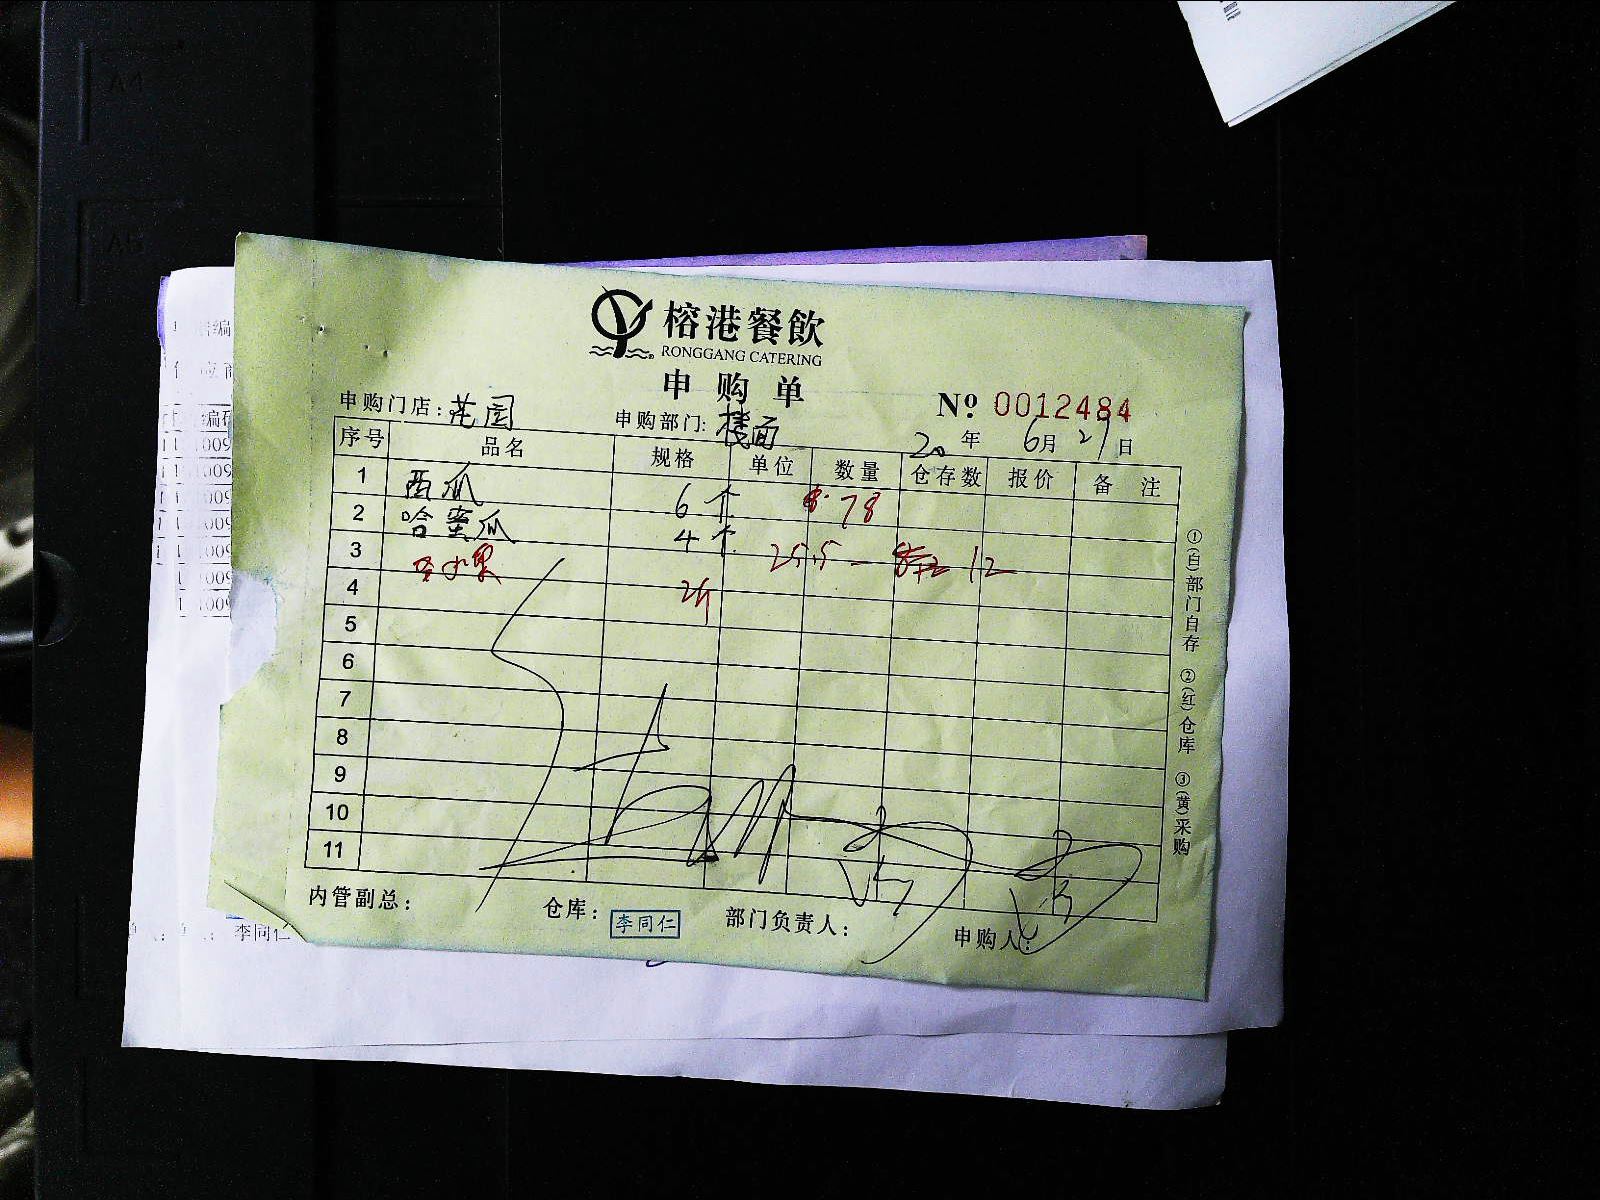 榕港餐飲
RONGGANG CATERING
申购单
申购门店:花园 申购部门:楼面 Nº 0012484
20年6月29日
序号 品名 规格 单位 数量 仓存数 报价 备注
1 西瓜 6个 78
2 哈蜜瓜 4个 25.5 12
3 水果
4
5
6
7
8
9
10
11
内管副总: 仓库: 李同仁 部门负责人: 申购人:
①(白)部门自存 ②(红)仓库 ③(黄)采购
编
应商
编码
1009
1009
1009
1009
1009
1009
1009
李同仁